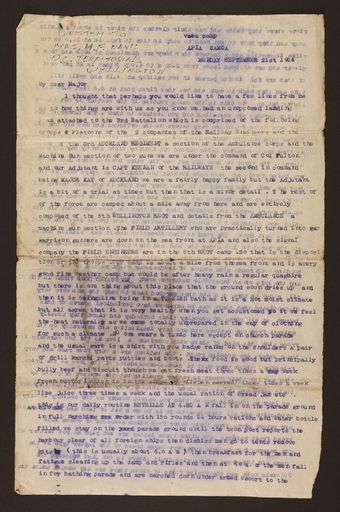 WRITTEN TO
MRS. M.F. DAVIS
O.C. TERRITORIAL
WELLINGTON
Vaea camp
APIA SAMOA
MONDAY SEPTEMBER 21st 1914
My dear Major
I thought that perhaps you would like to have a few lines from me
to how things are with us as you know we had an unopposed landing
am attached to the 3rd Battalion which is comprised of the fol. being
2 companies the Railway Engineers and the
the 3rd AUCKLAND REGIMENT a section of the ambulance corps and the
Machine Gun section of two guns we are under the command of Col Fulton
and our adjutant is CAPT KEENAN of the RAILWAYS the second in command
being MAJOR of AUCKLAND we are a fairly happy family but the Adjutant
is a bit of a trial at times but then that is a minor detail. The rest of
of the force are camped about a mile away from here and are entirely
composed of the 5th WELLINGTON REGT and details from the AMBULANCE a
machine gun section. The FIELD ARTILLERY who are practically turned into gar
garrison gunners are down on the sea front at APIA and also the signal
company the FIELD ENGINEERS are in the 5th REGT camp that is the
is a mile from the sea front and is a very
good fine weather camp but would be after heavy rains a regular quagmire
but there is one thing about this place that the ground soon dries up and
then it is being in a bath as it is a hot moist climate
but all agree that it is very healthy when you get accustomed to it we feel
the heat natural as we came totally unprepared in the way of clothing
for such a climate here except on church parade
and the usual wear is a shirt with you badge ranks on the shoulders a pair
of drill pants putties and boots. The food is good but principally
bully beef and biscuit though we get fresh meat three times a week
fresh butter three times a week
lime juice three times a week and the usual ration of bread jam etc
our daily work REVEILLE AT 4.30 A M fall in on the parade ground
in full marching order with 150 rounds 24 hours rations and water bottle
filled we stay on the parade ground until the look post reports the
harbour clear of all foreign ships then dismiss men go to tents remove
kits (this is usually about 6.0 a m) then breakfast for the men and
fatigue cleaning up the camp and rifles and then at the men fall
in for bathing parade and are marched down under armed escort to the